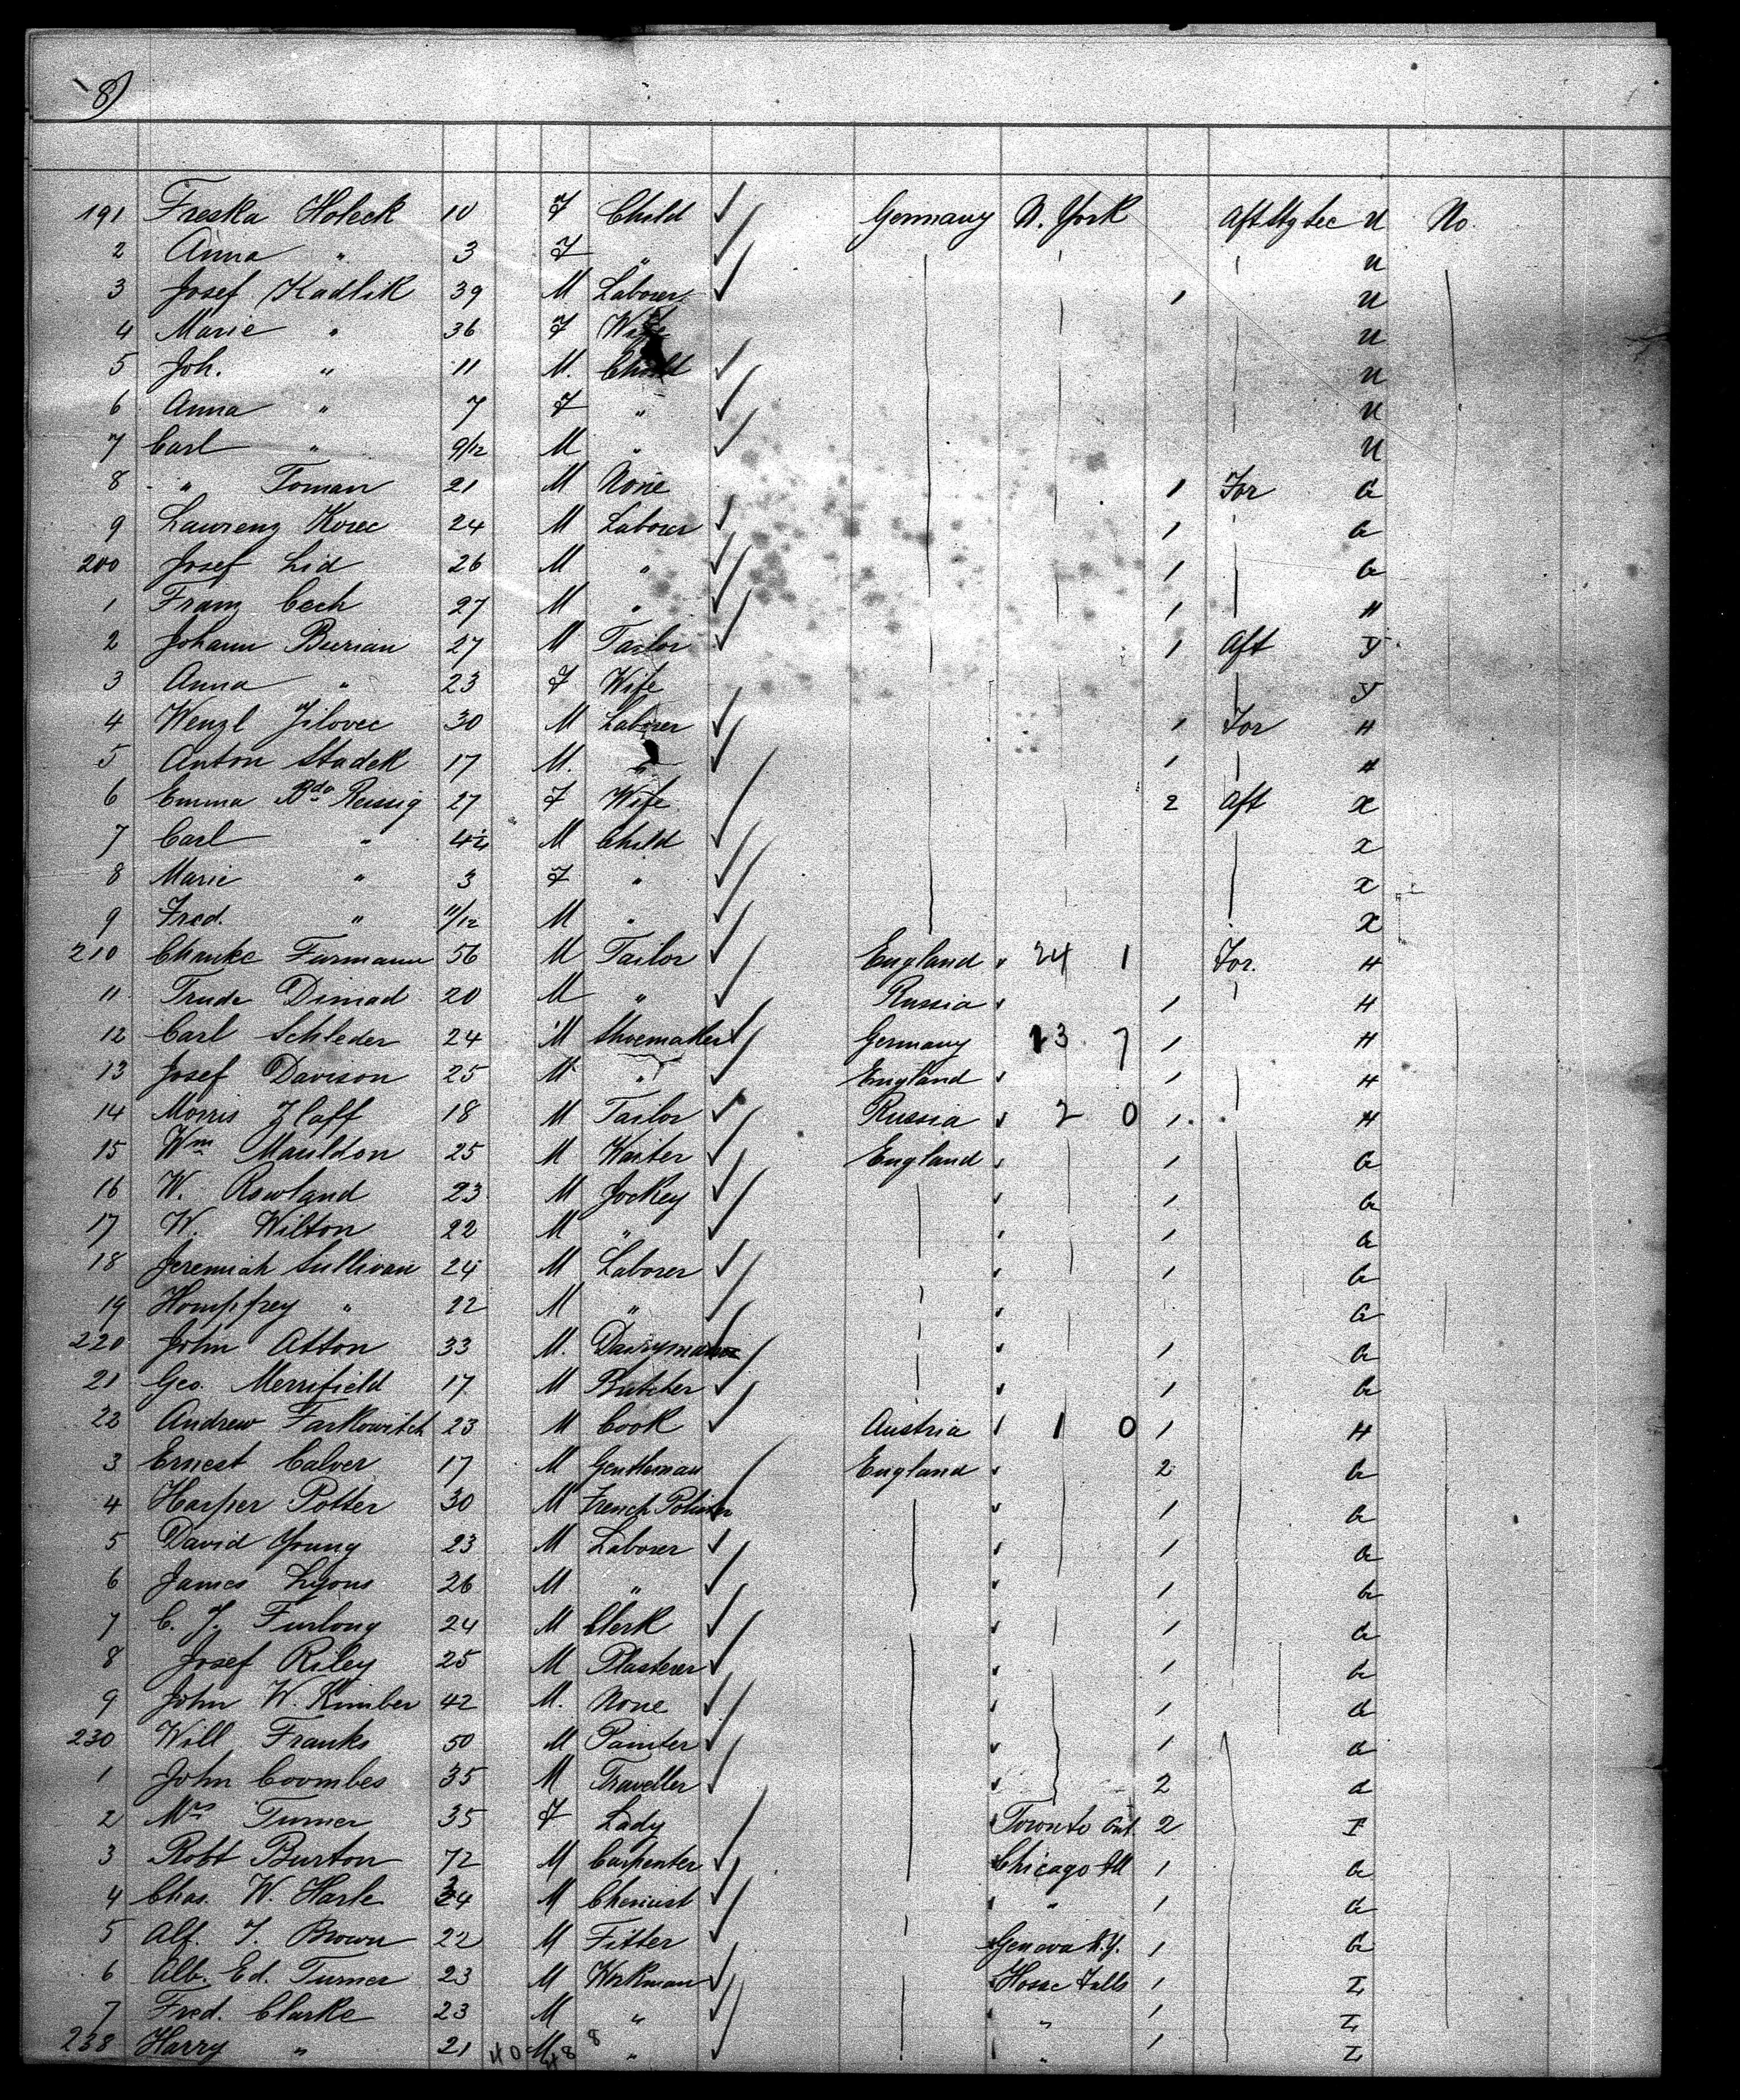 8)
191 Freska Holeck 10 F Child Germany N. York Aft Stg tec U No.
2 Anna " 3 F " U
3 Josef Kadlik 39 M Laborer 1 U
4 Marie " 36 F Wife U
5 Joh. " 11 M. Child U
6 Anna " 7 F " U
7 Carl " 9/12 M " U
8 " Toman 21 M None 1 For G
9 Laurenz Korec 24 M Laborer 1 G
200 Josef Lid 26 M " 1 G
1 Franz Cech 27 M " 1 H
2 Johann Burian 27 M Tailor 1 Aft Y
3 Anna " 23 F Wife Y
4 Wenzl Jilovec 30 M Laborer 1 For H
5 Anton Stadek 17 M. " 1 H
6 Emma Reissig 27 F Wife 2 Aft X
7 Carl " M Child X
8 Marie " 3 F " X
9 Fred. " 11/12 M " X
210 Furmann 56 M Tailor England " 24 1 For. H
11 Trude Dimad 20 M " Russia 1 H
12 Carl Schleder 24 M Shoemaker Germany 13 7 1 H
13 Josef Davison 25 M " England 1 H
14 Morris Zlaff 18 M Tailor Russia 2 0 1 H
15 Wm Mauldon 25 M Waiter England 1 G
16 W. Rowland 23 M Jockey 1 G
17 W. Wilton 22 M " 1 G
18 Jeremiah Sullivan 24 M Laborer 1 G
19 Hompfrey " 22 M " G
220 John Atton 33 M. Dairyman 1 G
21 Geo. Merrifield 17 M Butcher 1 G
22 Andrew Farkowitch 23 M Cook Austria 1 0 1 H
3 Ernest Calver 17 M Gentleman England 2 G
4 Harper Potter 30 M French Polisher 1 G
5 David Young 23 M Laborer 1 G
6 James Lyons 26 M " 1 G
7 C. J. Furlong 24 M Clerk 1 G
8 Josef Riley 25 M Plasterer 1 G
9 John W. Kimber 42 M. None 1 G
230 Will Franks 50 M Painter 1 G
1 John Coombes 35 M Traveller 2 G
2 Mrs Turner 35 F Lady Toronto Ont. 2 I
3 Robt Burton 72 M Carpenter Chicago Ill 1 G
4 Chas. W. Harle 34 M Chemist " 1 G
5 Alf. T. Brown 22 M Fitter Geneva N.Y. 1 G
6 Alb. Ed. Turner 23 M Workman Hosac Falls 1 I
7 Fred. Clarke 23 M " " 1 I
238 Harry " 21 M " " 1 I
40 48 8